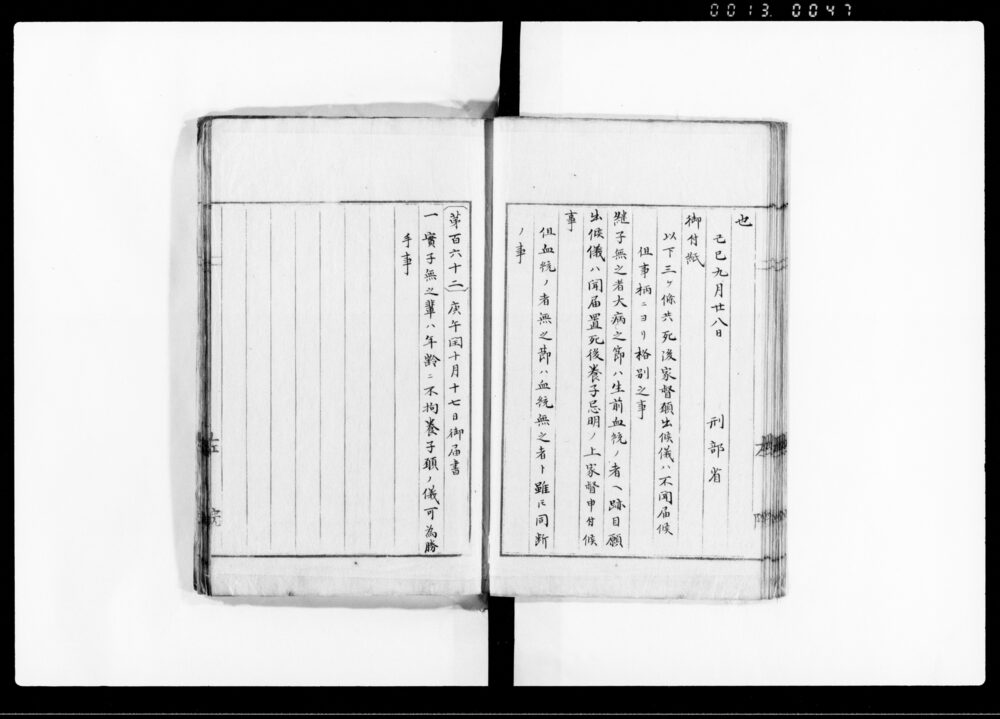 0013 0047
也
己巳九月廿八日 刑部省
御付紙
以下三ケ條共死後家督願出候儀ハ不聞届候
但事柄ニヨリ格別之事
継子無之者大病之節ハ生前血統ノ者ヘ跡目願
出候儀ハ聞届置死後養子忌明ノ上家督申付候
事
但血統ノ者無之節ハ血統無之者ト雖𪜈同断
ノ事
第百六十二 庚午閏十月十七日御届書
一實子無之輩ハ年齢ニ不拘養子願ノ儀可為勝
手事
左院